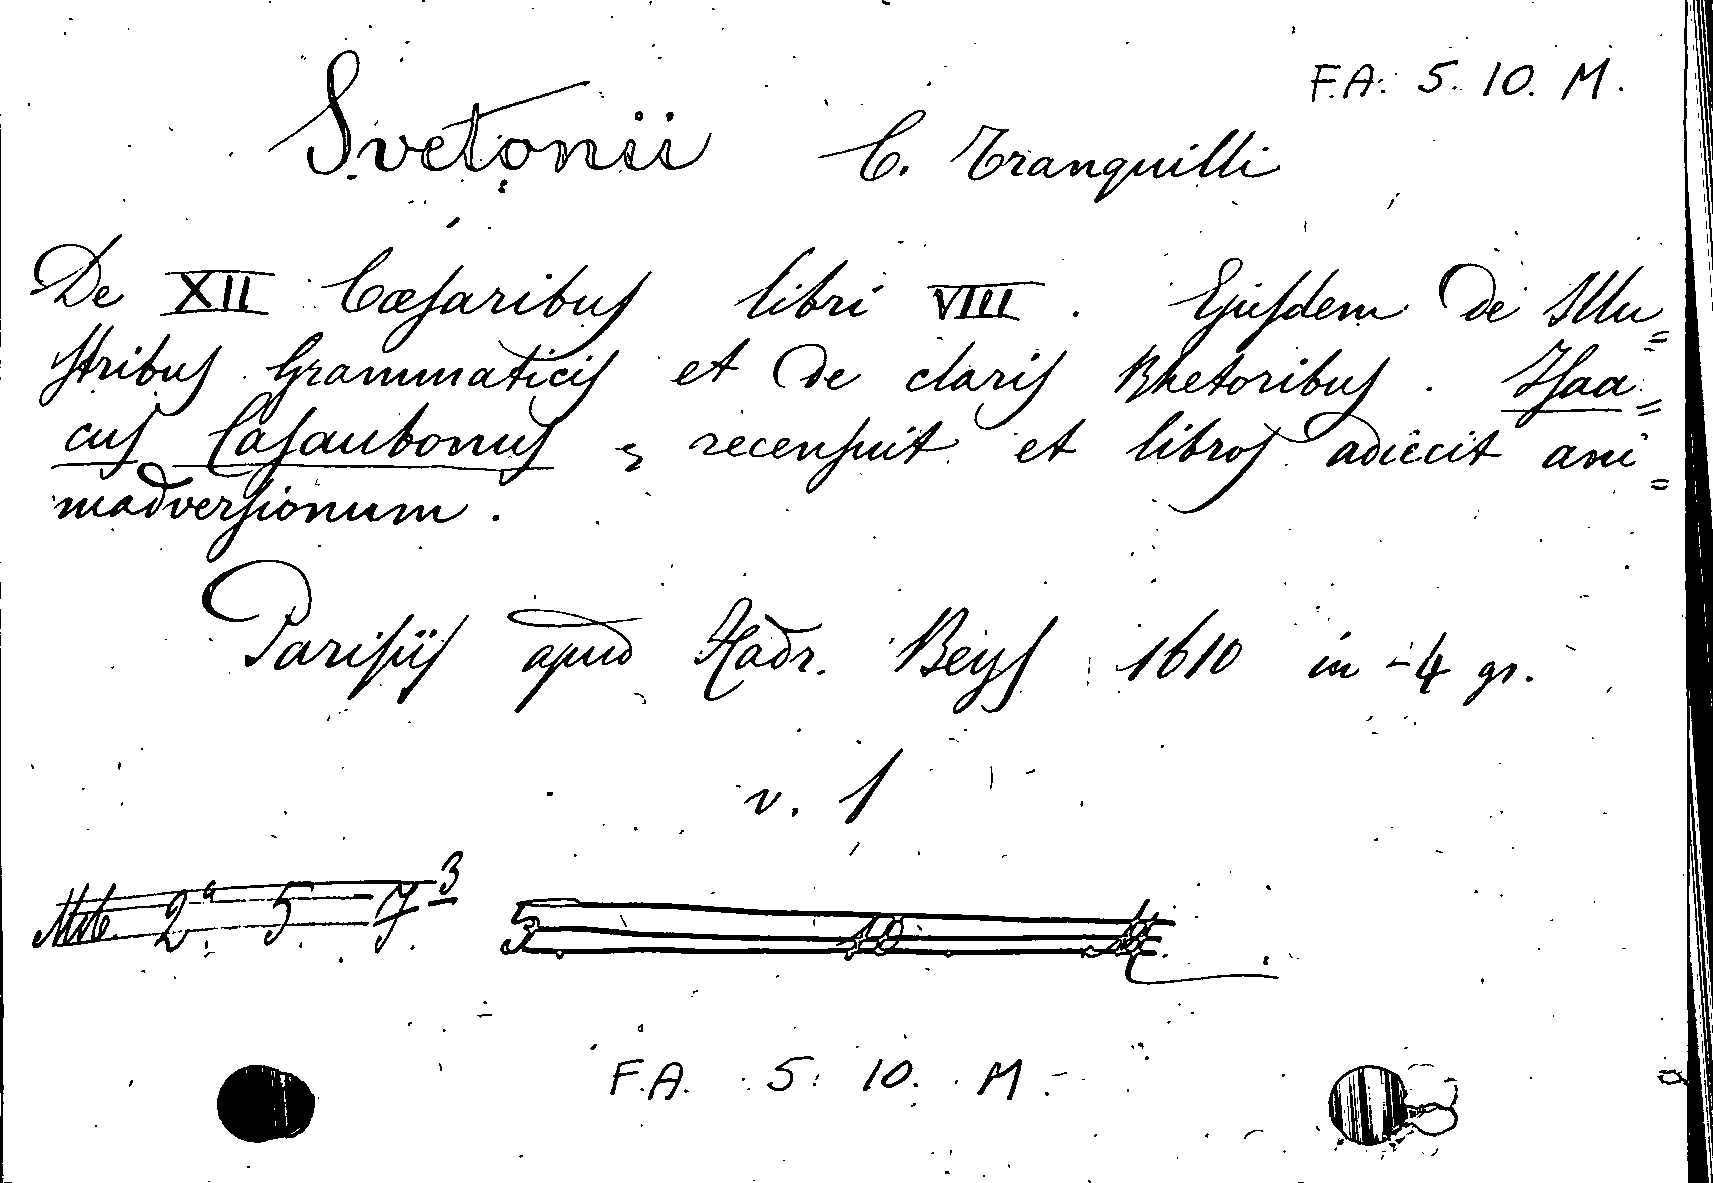 F.A. 5. 10. M.
Svetonii C. Tranquilli
De XII Cæsaribus libri VIII. Ejusdem de Illu=
stribus Grammaticis et de claris Rhetoribus. Isaa=
cus Casaubonus, recensuit et libros adiecit ani=
madversionum.
Parisiis apud Hadr. Beys 1610 in-4 gr.
v. 1
2a 5. 7.3 5. 10. M.
F.A. 5. 10. M.